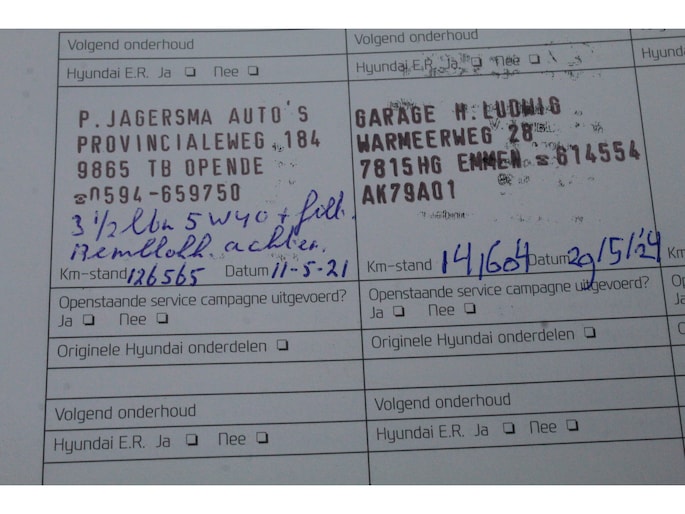 Volgend onderhoud
Hyundai E.R. Ja ❑ Nee ❑
P. JAGERSMA AUTO'S
PROVINCIALEWEG 184
9865 TB OPENDE
☎0594-659750
3 1/2 ltr 5W40 + filt.
Remblokk. achter.
Km-stand 126565 Datum 11-5-21
Openstaande service campagne uitgevoerd?
Ja ❑ Nee ❑
Originele Hyundai onderdelen ❑
Volgend onderhoud
Hyundai E.R. Ja ❑ Nee ❑
Volgend onderhoud
Hyundai E.R. Ja ❑ Nee ❑
GARAGE H. LUDWIG
WARMEERWEG 28
7815HG EMMEN ☎ 614554
AK79A01
Km-stand 141604 Datum 29/5/'24
Openstaande service campagne uitgevoerd?
Ja ❑ Nee ❑
Originele Hyundai onderdelen ❑
Volgend onderhoud
Hyundai E.R. Ja ❑ Nee ❑
Hyundai
Km
Op
Ja
Ori